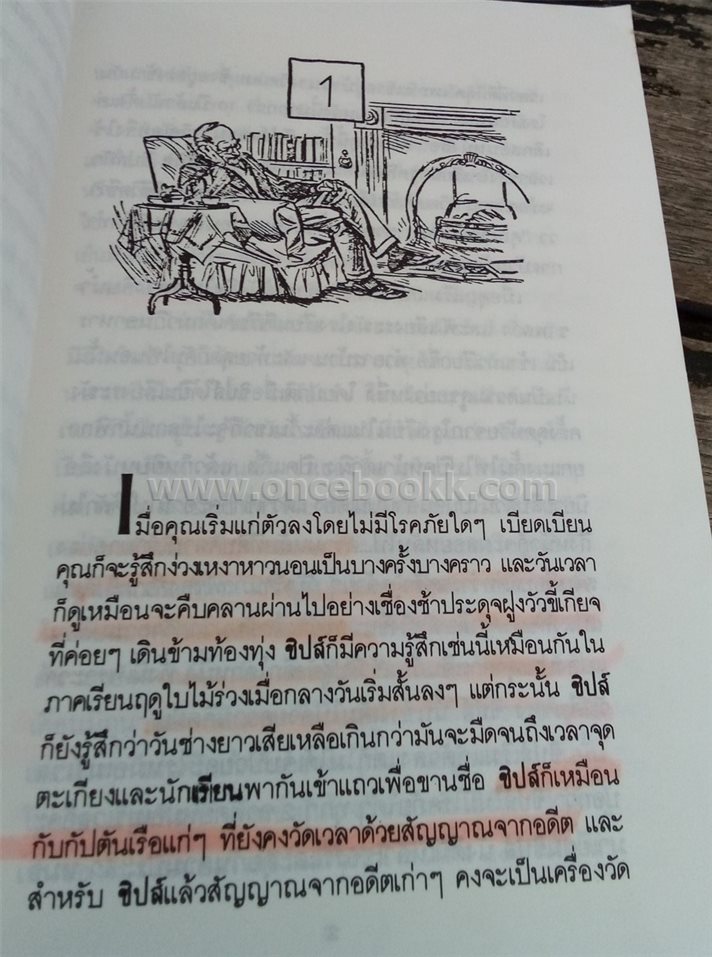 1
www.oncebookk.com
เมื่อคุณเริ่มแก่ตัวลงโดยไม่มีโรคภัยใดๆ เบียดเบียน
คุณก็จะรู้สึกง่วงเหงาหาวนอนเป็นบางครั้งบางคราว และวันเวลา
ก็ดูเหมือนจะคืบคลานผ่านไปอย่างเชื่องช้าประดุจฝูงวัวขี้เกียจ
ที่ค่อยๆ เดินข้ามท้องทุ่ง ชิปส์ก็มีความรู้สึกเช่นนี้เหมือนกันใน
ภาคเรียนฤดูใบไม้ร่วงเมื่อกลางวันเริ่มสั้นลงๆ แต่กระนั้น ชิปส์
ก็ยังรู้สึกว่าวันช่างยาวเสียเหลือเกินกว่ามันจะมืดจนถึงเวลาจุด
ตะเกียงและนักเรียนพากันเข้าแถวเพื่อขานชื่อ ชิปส์ก็เหมือน
กับกัปตันเรือแก่ๆ ที่ยังคงวัดเวลาด้วยสัญญาณจากอดีต และ
สำหรับ ชิปส์แล้วสัญญาณจากอดีตเก่าๆ คงจะเป็นเครื่องวัด